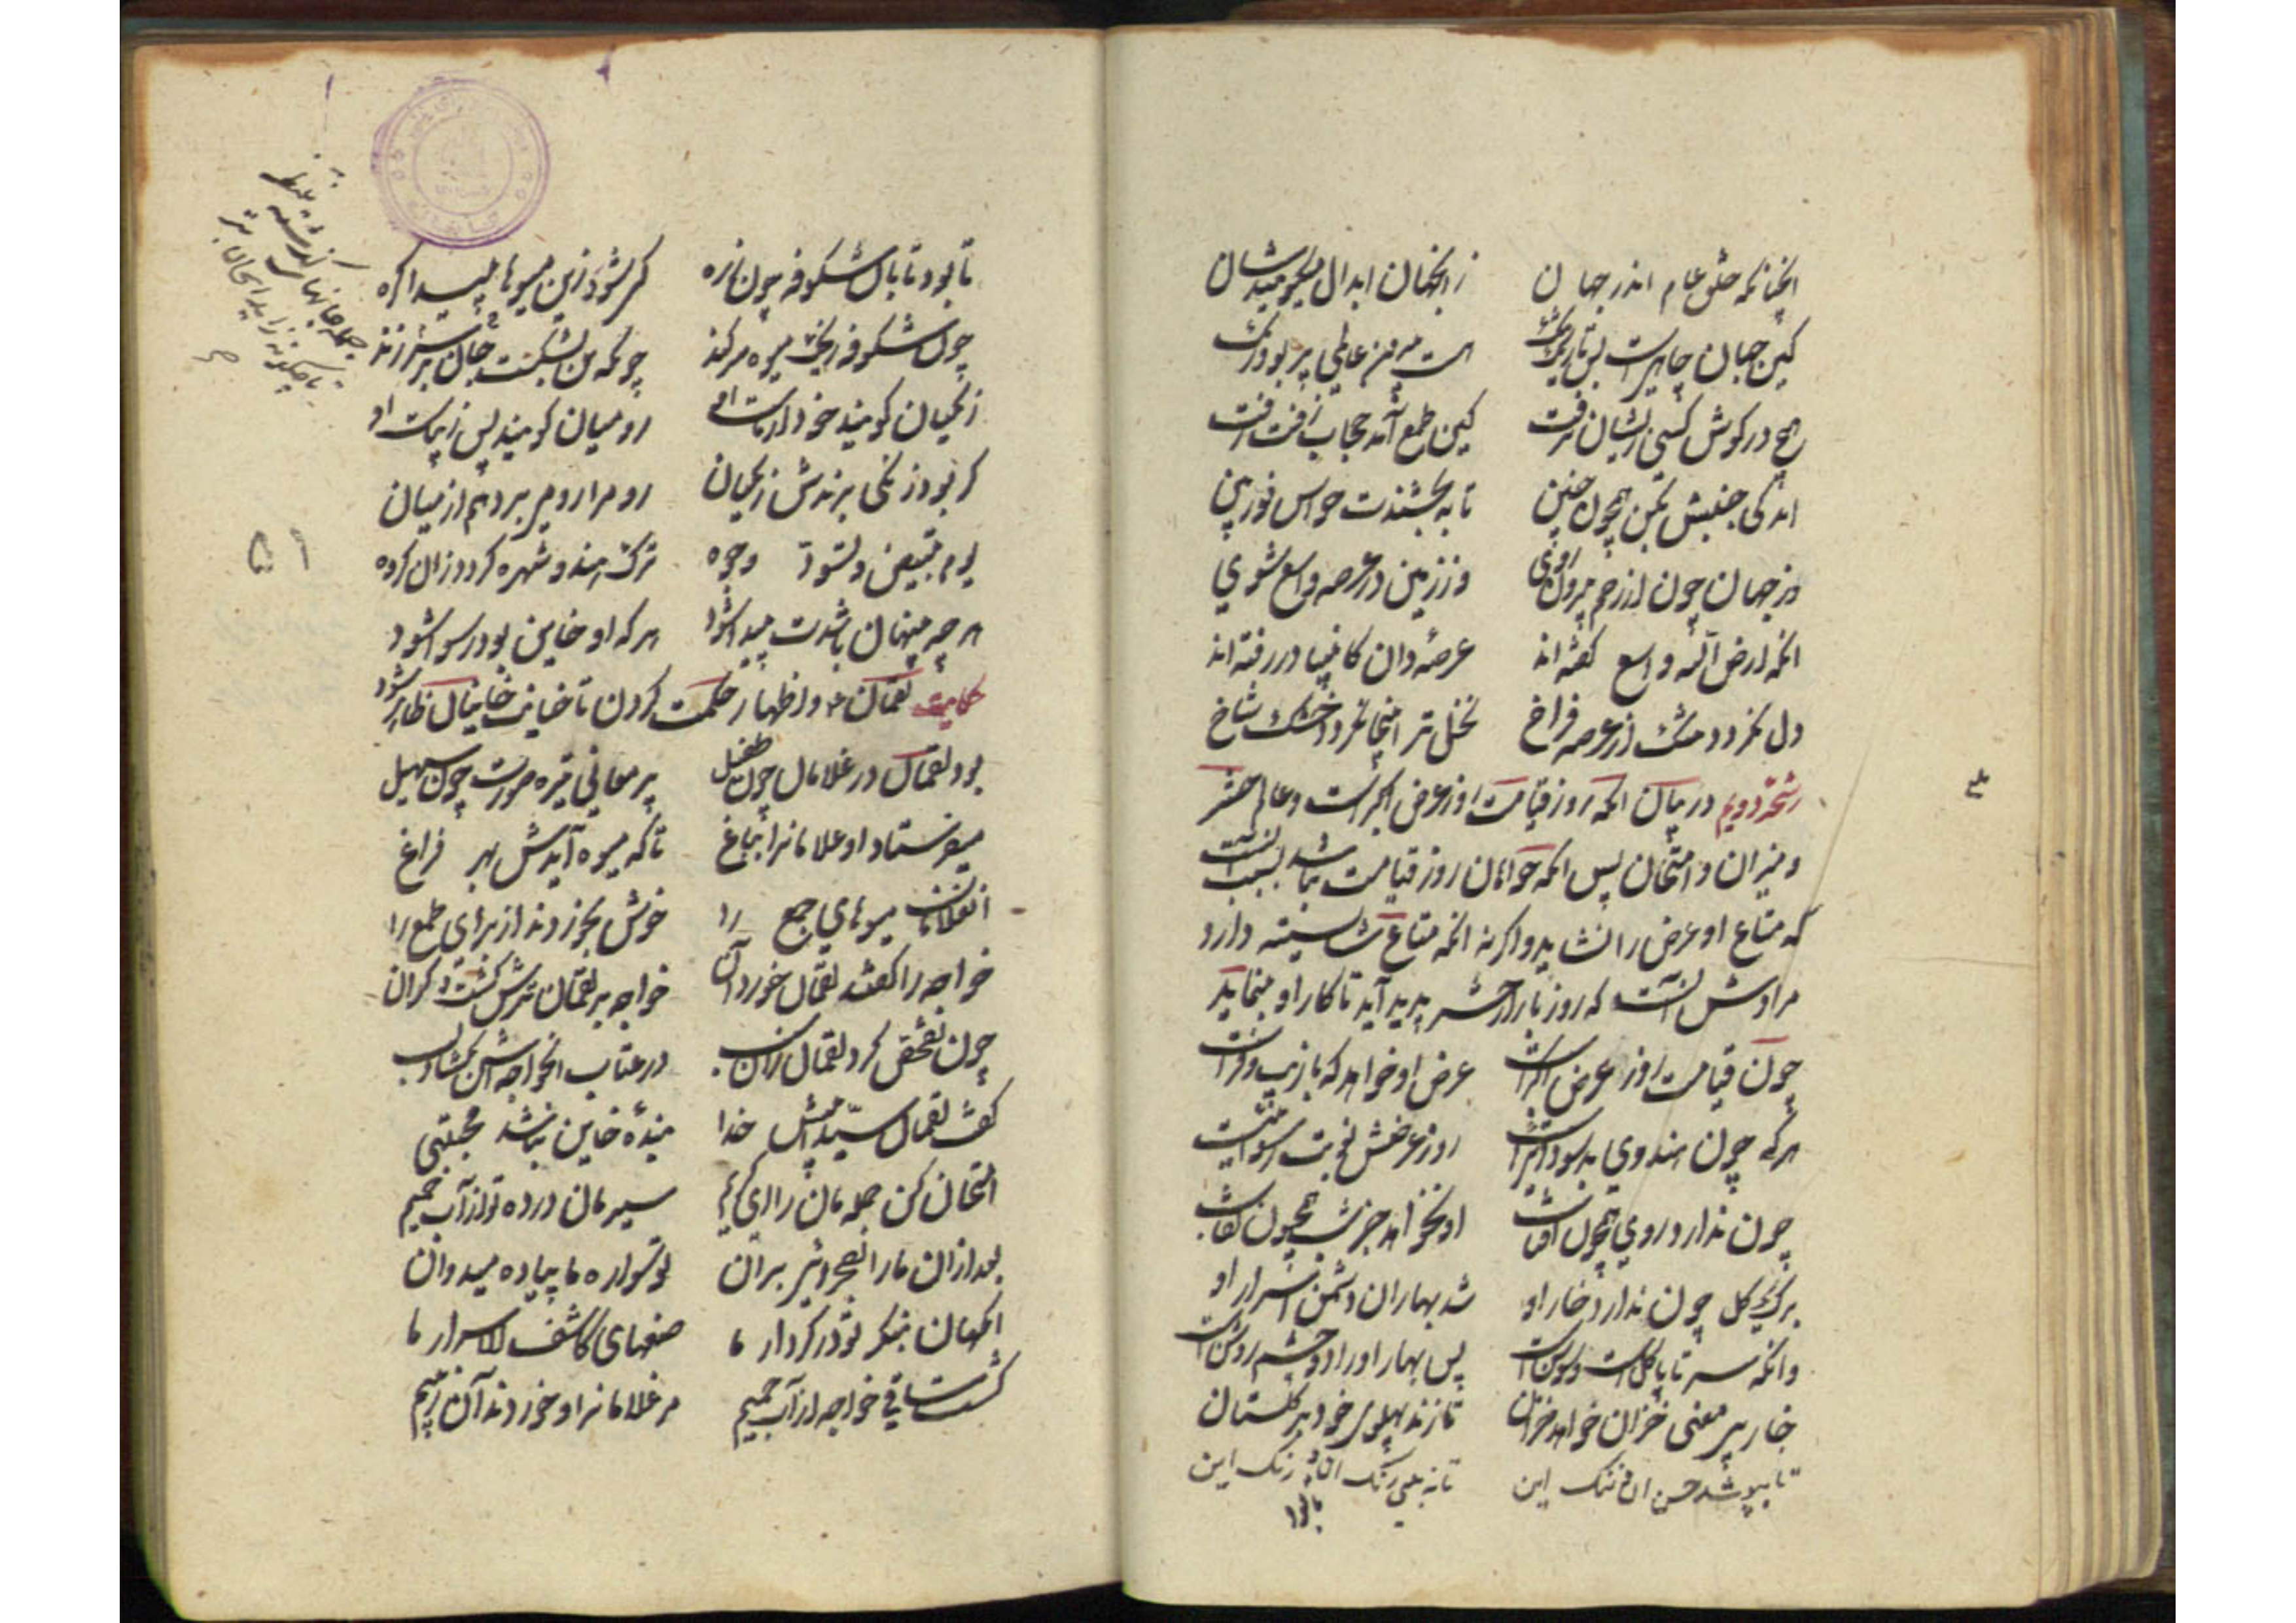 انچنانکه خلق عام اندر جهان زانجهان ابدال میگویندشان
کین جهان چاهیست بس تاریک و تنگ هست بیرون عالمی بی بو و رنگ
هیچ در گوش کسی زایشان نرفت کین طمع آمد حجاب ژرف و زفت
اندکی جنبش بکن همچون جنین تا ببخشندت حواس نور بین
وز جهان چون از رحم بیرون روی وز زمین در عرصه واسع شوی
انکه ارض الله واسع گفته اند عرصه دان کانبیا در رفته اند
دل نگردد تنگ از عرصه فراخ نخل تر آنجا نگردد خشک شاخ
رشحه دویم در بیان انکه روز قیامت روز عرض اکبرست و عالم حشر
و میزان و امتحان پس انکه خواهان روز قیامت نباشد بسبب انست
که متاع او عرض را نشاید و اگر نه انکه متاع شایسته دارد
مرادش انست که روز بازار حشر پدید آید تا کار او بنماید
چون قیامت روز عرض اکبرست عرض او خواهد که با زیب و فرست
هر که چون هندوی بد سوداییست روز عرضش نوبت رسواییست
چون ندارد روی همچون آفتاب او نخواهد جز شب همچون نقاب
برگ یک گل چون ندارد خار او شد بهاران دشمن اسرار او
وانکه سر تا پا گلست و سوسنست پس بهار او را دو چشم روشنست
خار بی معنی خزان خواهد خزان تا زند پهلوی خود بر گلستان
تا بپوشد حسن آن و ننگ این تا نبینی رنگ آن و زنگ این
تا بود تابان شکوفه چون زره کی شود زین میوها پیدا گره
چون شکوفه ریخت میوه سر کند چونکه تن بشکست جان سر برزند
زنگیان گویند خود از ماست او رومیان گویند بس زیباست او
گر بود زنگی برندش زنگیان رومی را رومی برد هم از میان
یوم تبیض و تسود وجوه ترک و هندو شهره گردد زان گروه
هر چه پنهان باشدت پیدا شود هر که او خاین بود رسوا شود
حکایت لقمان و اظهار حکمت کردن تا خیانت خاینان ظاهر شود
بود لقمان در غلامان چون طفیل پر معانی تیره صورت چون سهیل
میفرستاد او غلامانرا بباغ تا که میوه آیدش بهر فراغ
ان غلامان میوهای جمع را خوش بخوردند از برای طمع را
خواجه را گفتند لقمان خورد آن خواجه بر لقمان ترش گشت و گران
چون تفحص کرد لقمان زان سبب در عتاب خواجه اش بگشاد لب
گفت لقمان سیدا پیش خدا بنده خاین نباشد مجتبی
امتحان کن جمله مان را ای کریم سیرمان در ده تو از آب حمیم
بعد ازان ما را بصحرا بر بران تو سواره ما پیاده میدوان
انگهان بنگر تو در کردار ما صنعهای کاشف الاسرار ما
گشت ساقی خواجه از آب حمیم مر غلامانرا و خوردند آن ز بیم
۵۱